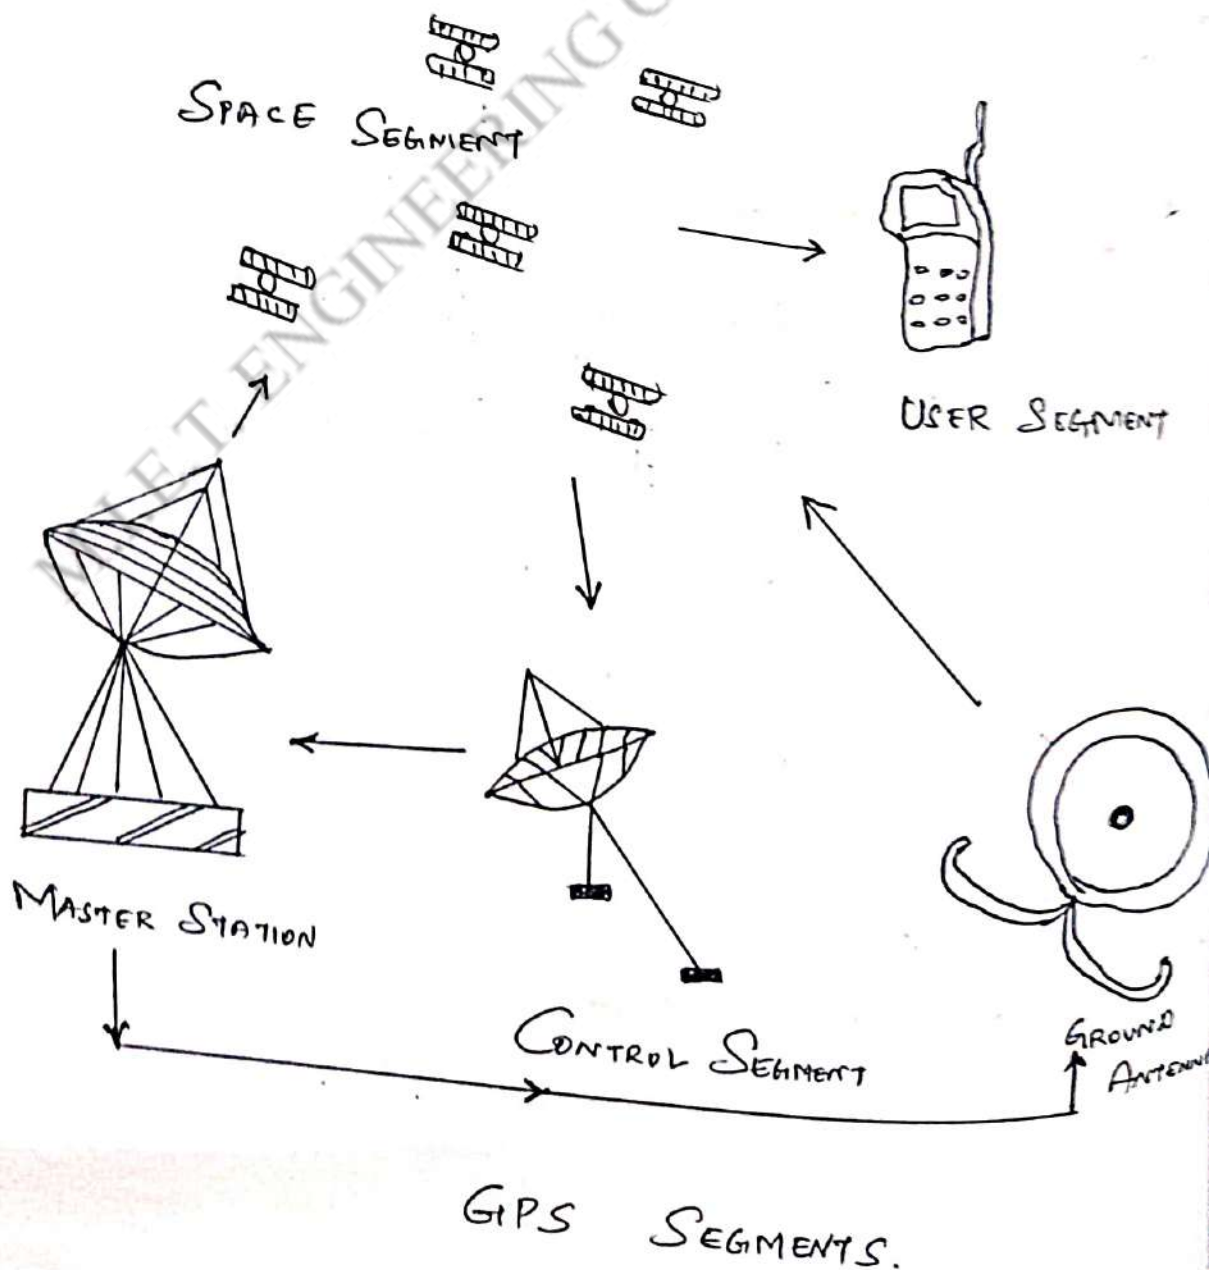 M.I.E.T. ENGINEERING
SPACE SEGMENT
USER SEGMENT
MASTER STATION
CONTROL SEGMENT
GROUND
GPS SEGMENTS.